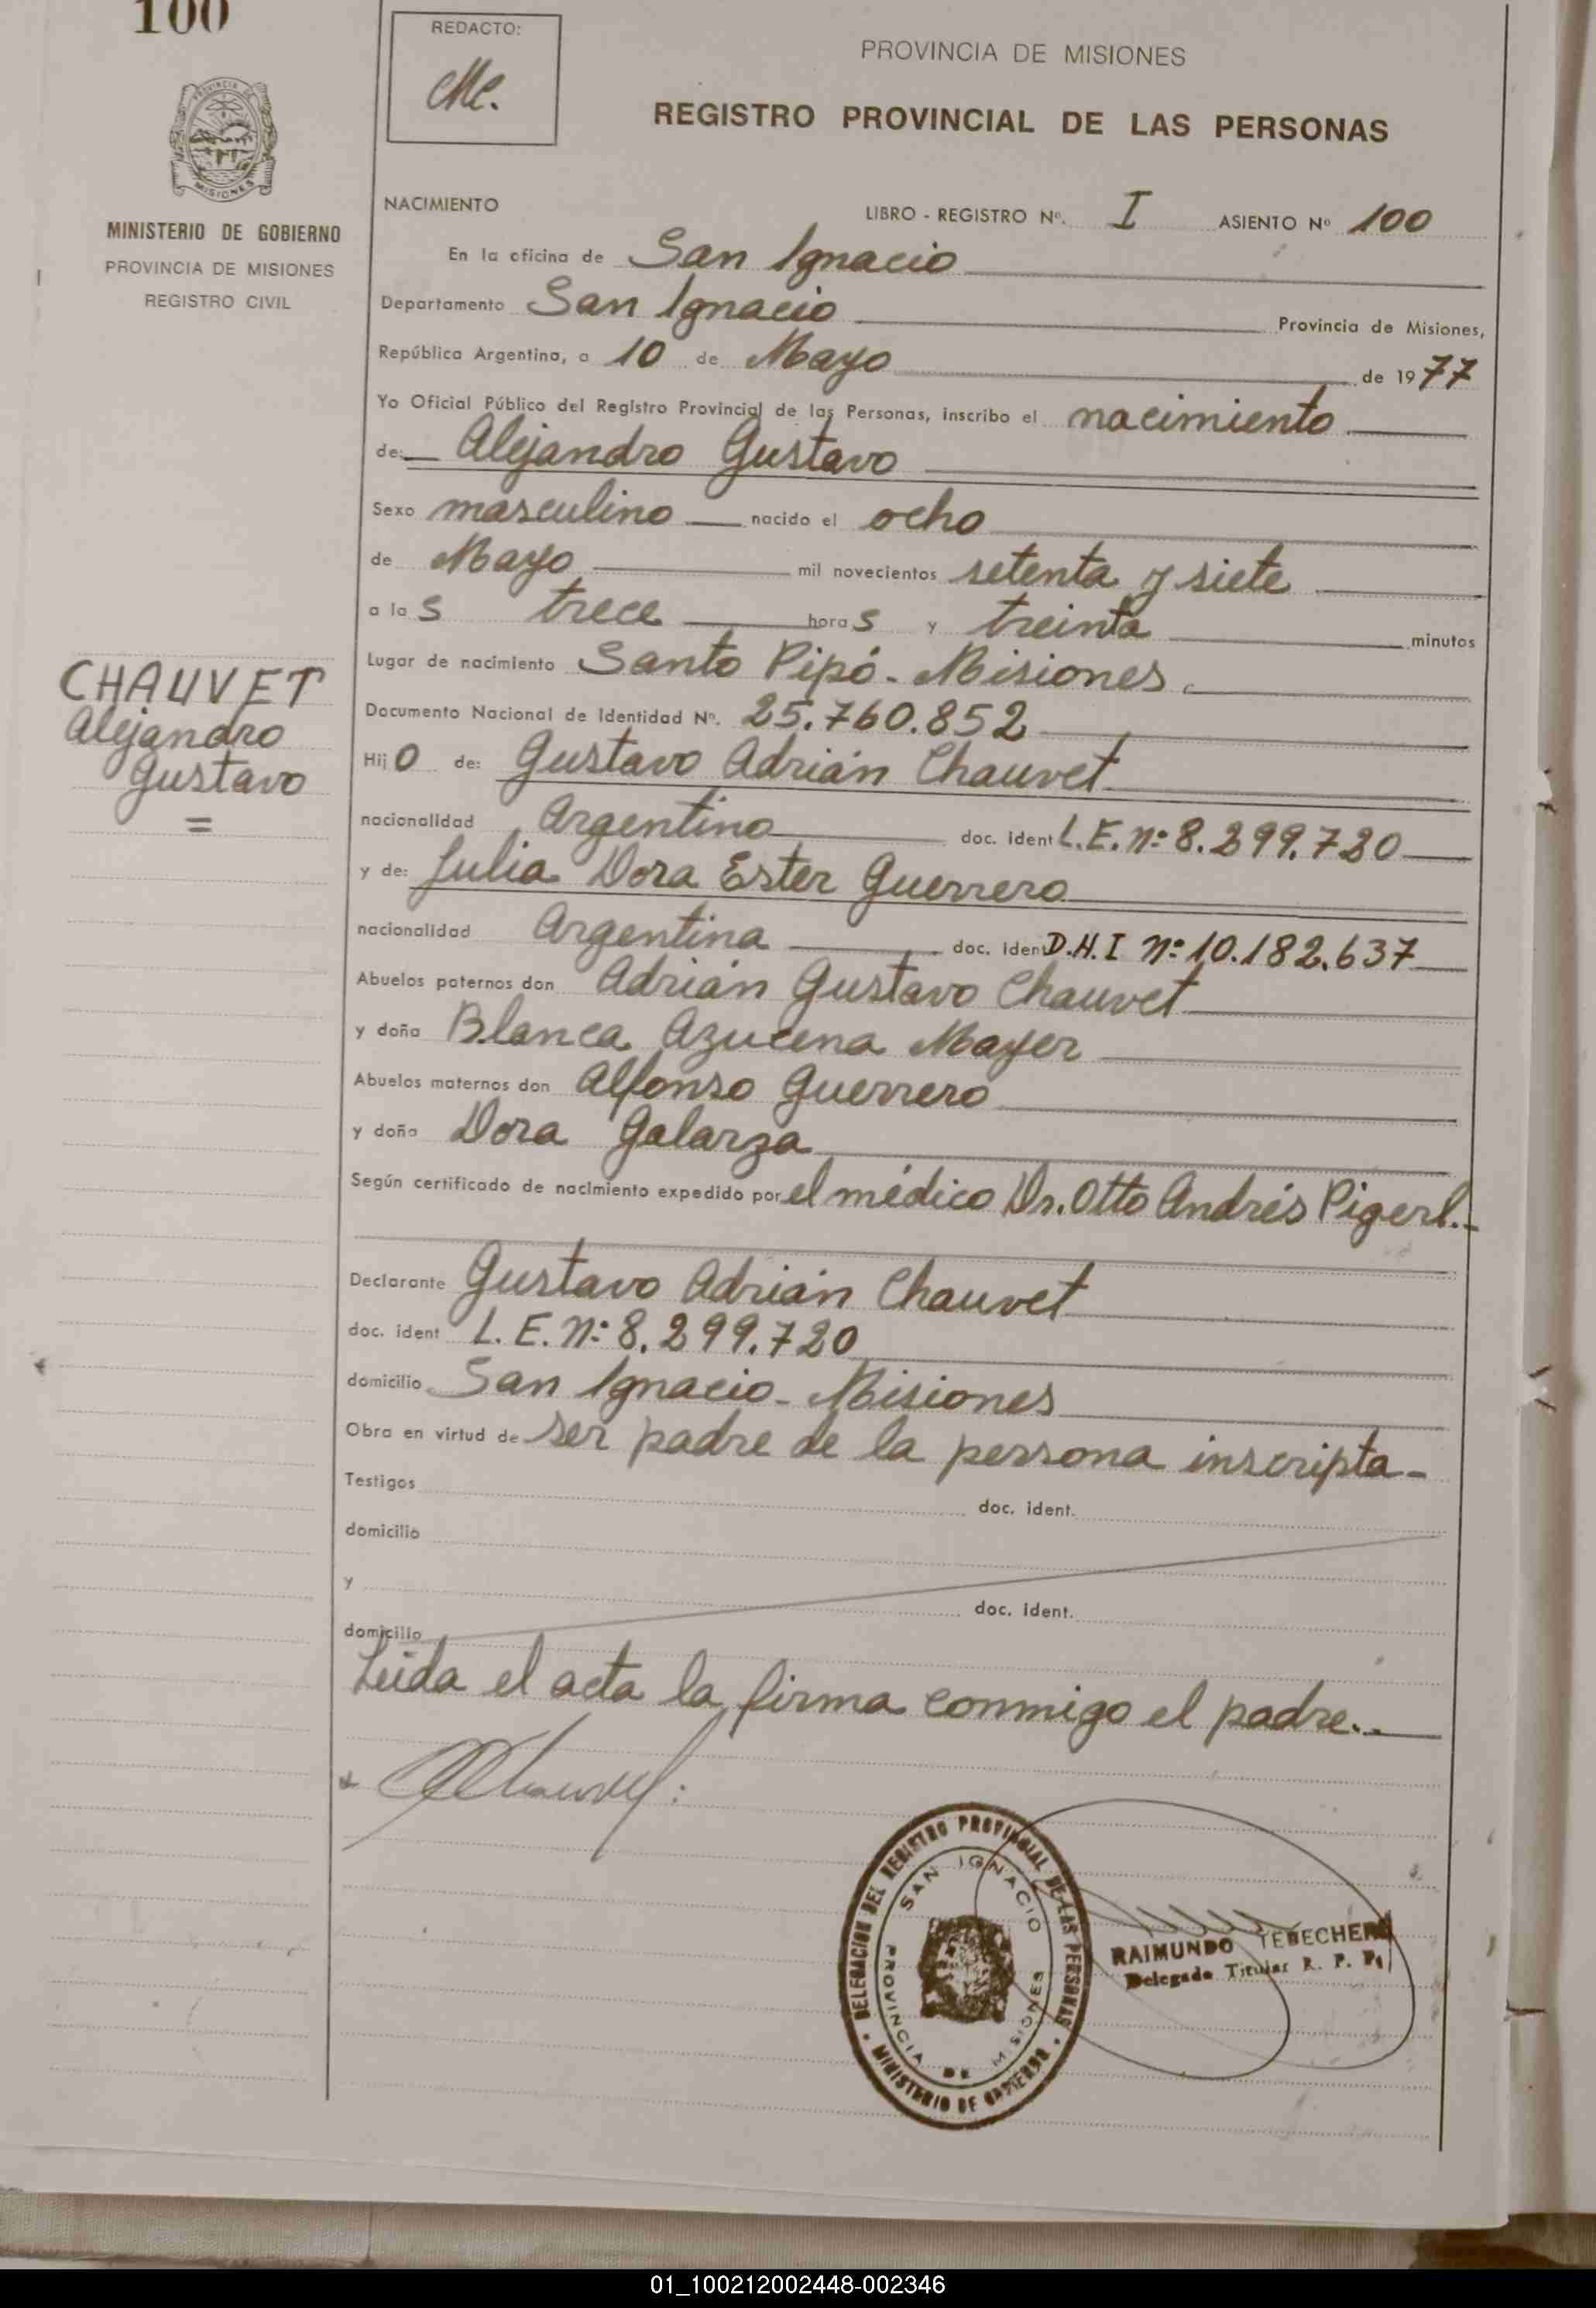 100
REDACTO:
Me.
PROVINCIA DE MISIONES
REGISTRO PROVINCIAL DE LAS PERSONAS
PROVINCIA DE
MISIONES
MINISTERIO DE GOBIERNO
PROVINCIA DE MISIONES
REGISTRO CIVIL
NACIMIENTO
LIBRO - REGISTRO Nº. I ASIENTO Nº 100
En la oficina de San Ignacio
Departamento San Ignacio Provincia de Misiones,
República Argentina, a 10 de Mayo de 1977
Yo Oficial Público del Registro Provincial de las Personas, inscribo el nacimiento
de: Alejandro Gustavo
Sexo masculino nacido el ocho
de Mayo mil novecientos setenta y siete
a las trece horas y treinta minutos
Lugar de nacimiento Santo Pipó - Misiones
CHAUVET
Alejandro
Gustavo
=
Documento Nacional de Identidad Nº. 25.760.852
Hijo de: Gustavo Adrián Chauvet
nacionalidad Argentino doc. ident L.E. nº 8.299.720
y de: Julia Dora Ester Guerrero
nacionalidad Argentina doc. ident D.N.I nº 10.182.637
Abuelos paternos don Adrián Gustavo Chauvet
y doña Blanca Azucena Mayer
Abuelos maternos don Alfonso Guerrero
y doña Dora Galarza
Según certificado de nacimiento expedido por el médico Dr. Otto Andrés Pigerl.-
Declarante Gustavo Adrián Chauvet
doc. ident L. E. nº 8.299.720
domicilio San Ignacio - Misiones
Obra en virtud de ser padre de la persona inscripta-
Testigos doc. ident.
domicilio
y doc. ident.
domicilio
Leida el acta la firma conmigo el padre.-
DELEGACION DEL REGISTRO PROVINCIAL DE LAS PERSONAS
SAN IGNACIO
PROVINCIA DE MISIONES
MINISTERIO DE GOBIERNO
RAIMUNDO
Delegado Titular R. P. P.
01_100212002448-002346